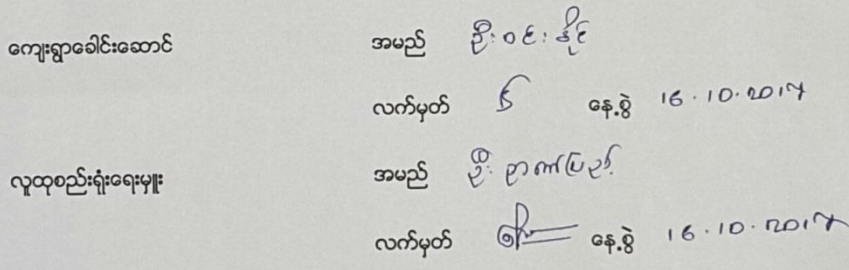 ကျေးရွာခေါင်းဆောင် အမည် ဦးဝင်းနိုင်
လက်မှတ် နေ့စွဲ 16.10.2017
လူထုစည်းရုံးရေးမှူး အမည် ဦးဉာဏ်ပြည့်
လက်မှတ် နေ့စွဲ 16.10.2017